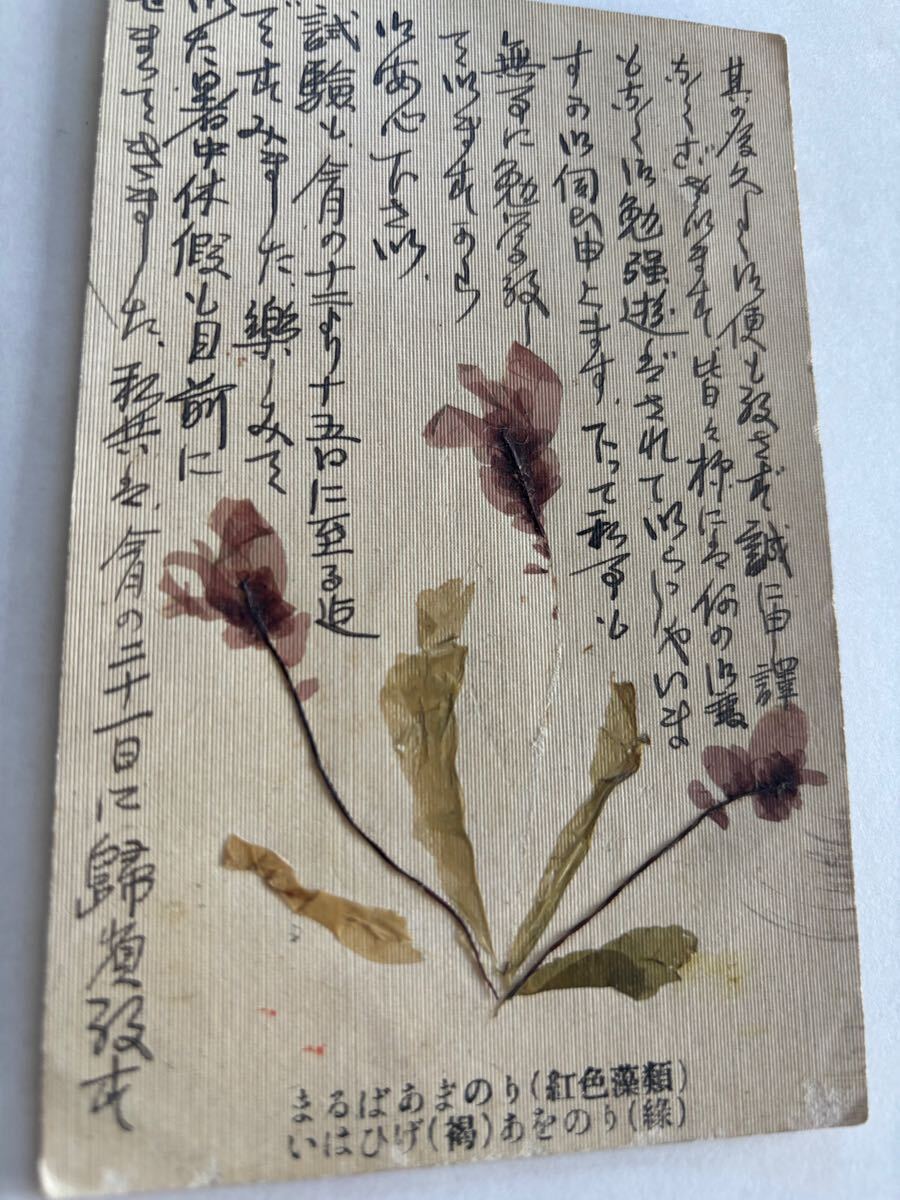 其の後久しく御便も致さず誠に申譯
なくござゐます 皆々様には何の御変
もなく御勉強遊ばされて居らしやいま
すか御伺ひ申上ます。下つて私事も
無事に勉学致し
て居ますから
御安心下さい。
試験も今月の十二より十五日に至る迄
ですみました 楽しみて
た暑中休假も目前に
せまつてきました、私共は、今月の二十一日に歸濱致す
まるばあまのり(紅色藻類)
いはひげ(褐)あをのり(綠)